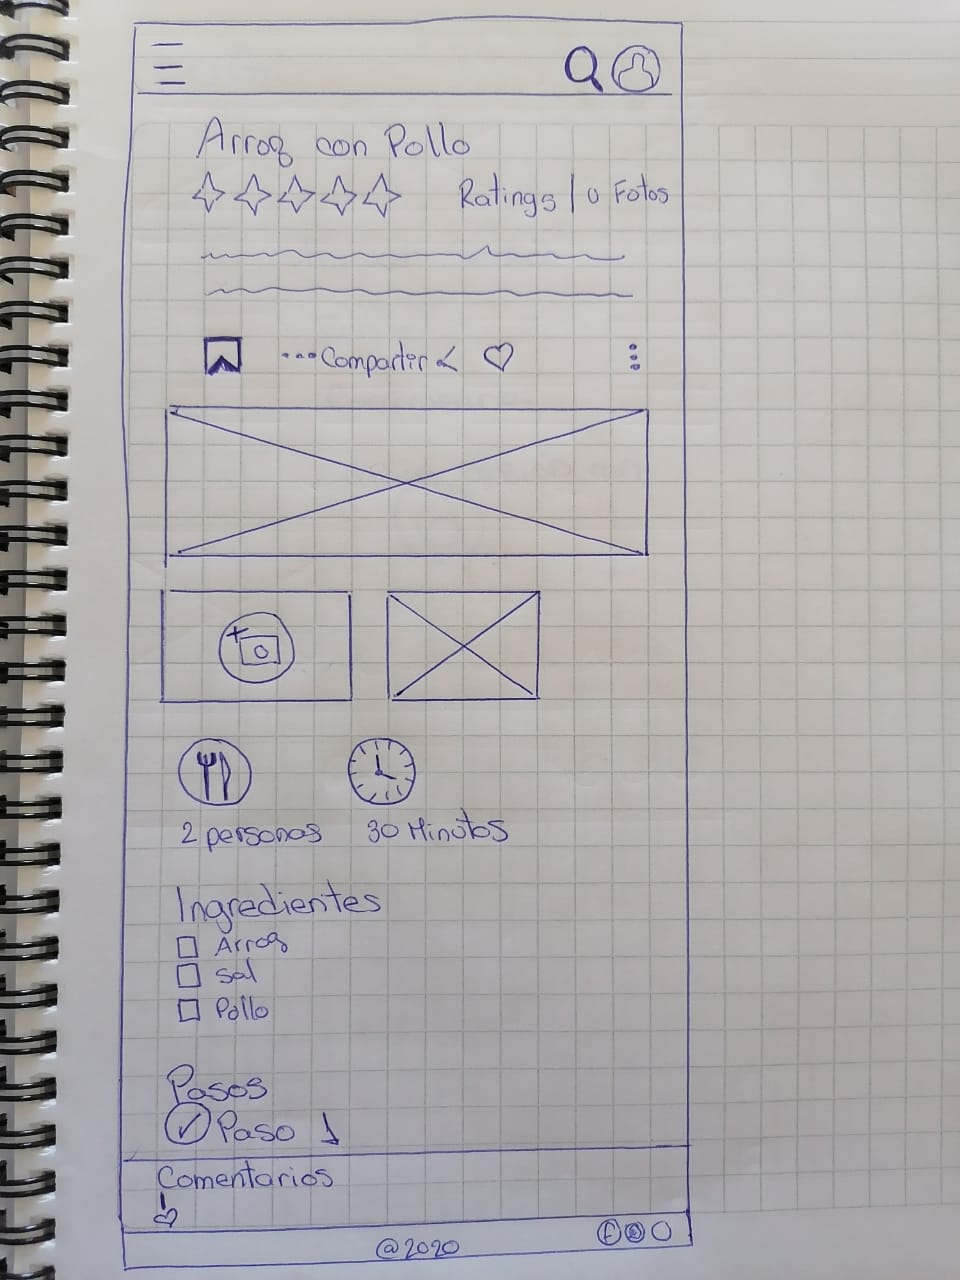 Arroz con Pollo
Ratings | 0 Fotos
...Compartir
2 personas 30 Minutos
Ingredientes
Arroz
Sal
Pollo
Pasos
Paso 1
Comentarios
@2020